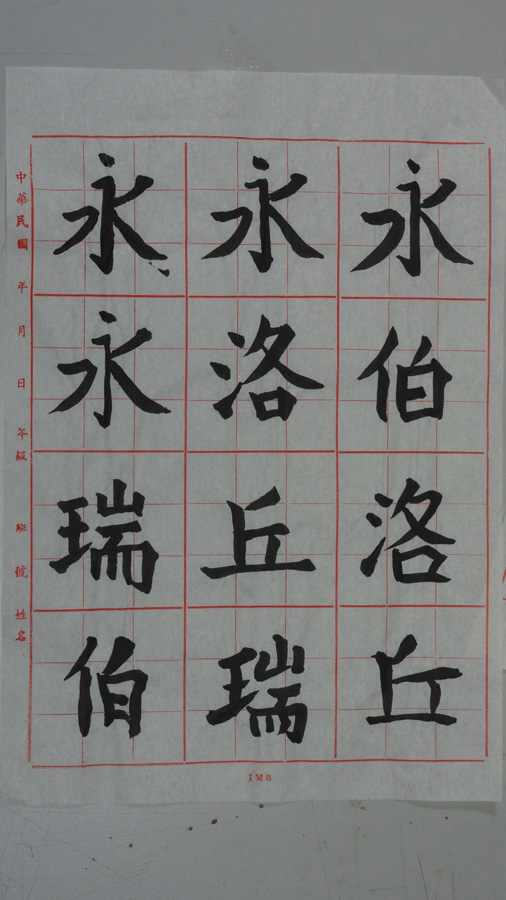 永伯洛丘
永洛丘瑞
永永瑞伯
中華民國 年 月 日 年級 班 號 姓名